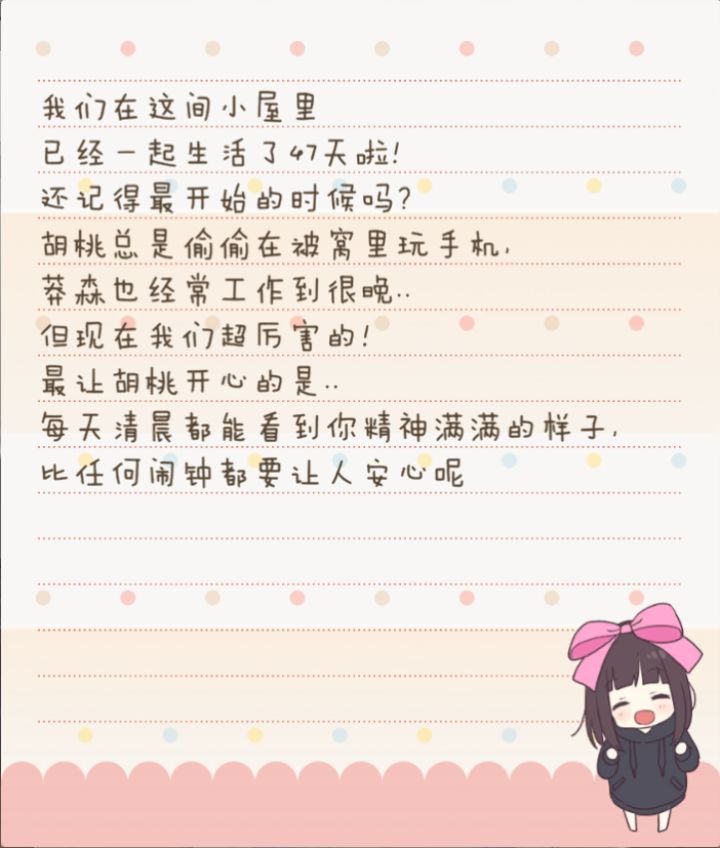 我们在这间小屋里
已经一起生活了47天啦!
还记得最开始的时候吗?
胡桃总是偷偷在被窝里玩手机,
莽森也经常工作到很晚..
但现在我们超厉害的!
最让胡桃开心的是..
每天清晨都能看到你精神满满的样子,
比任何闹钟都要让人安心呢